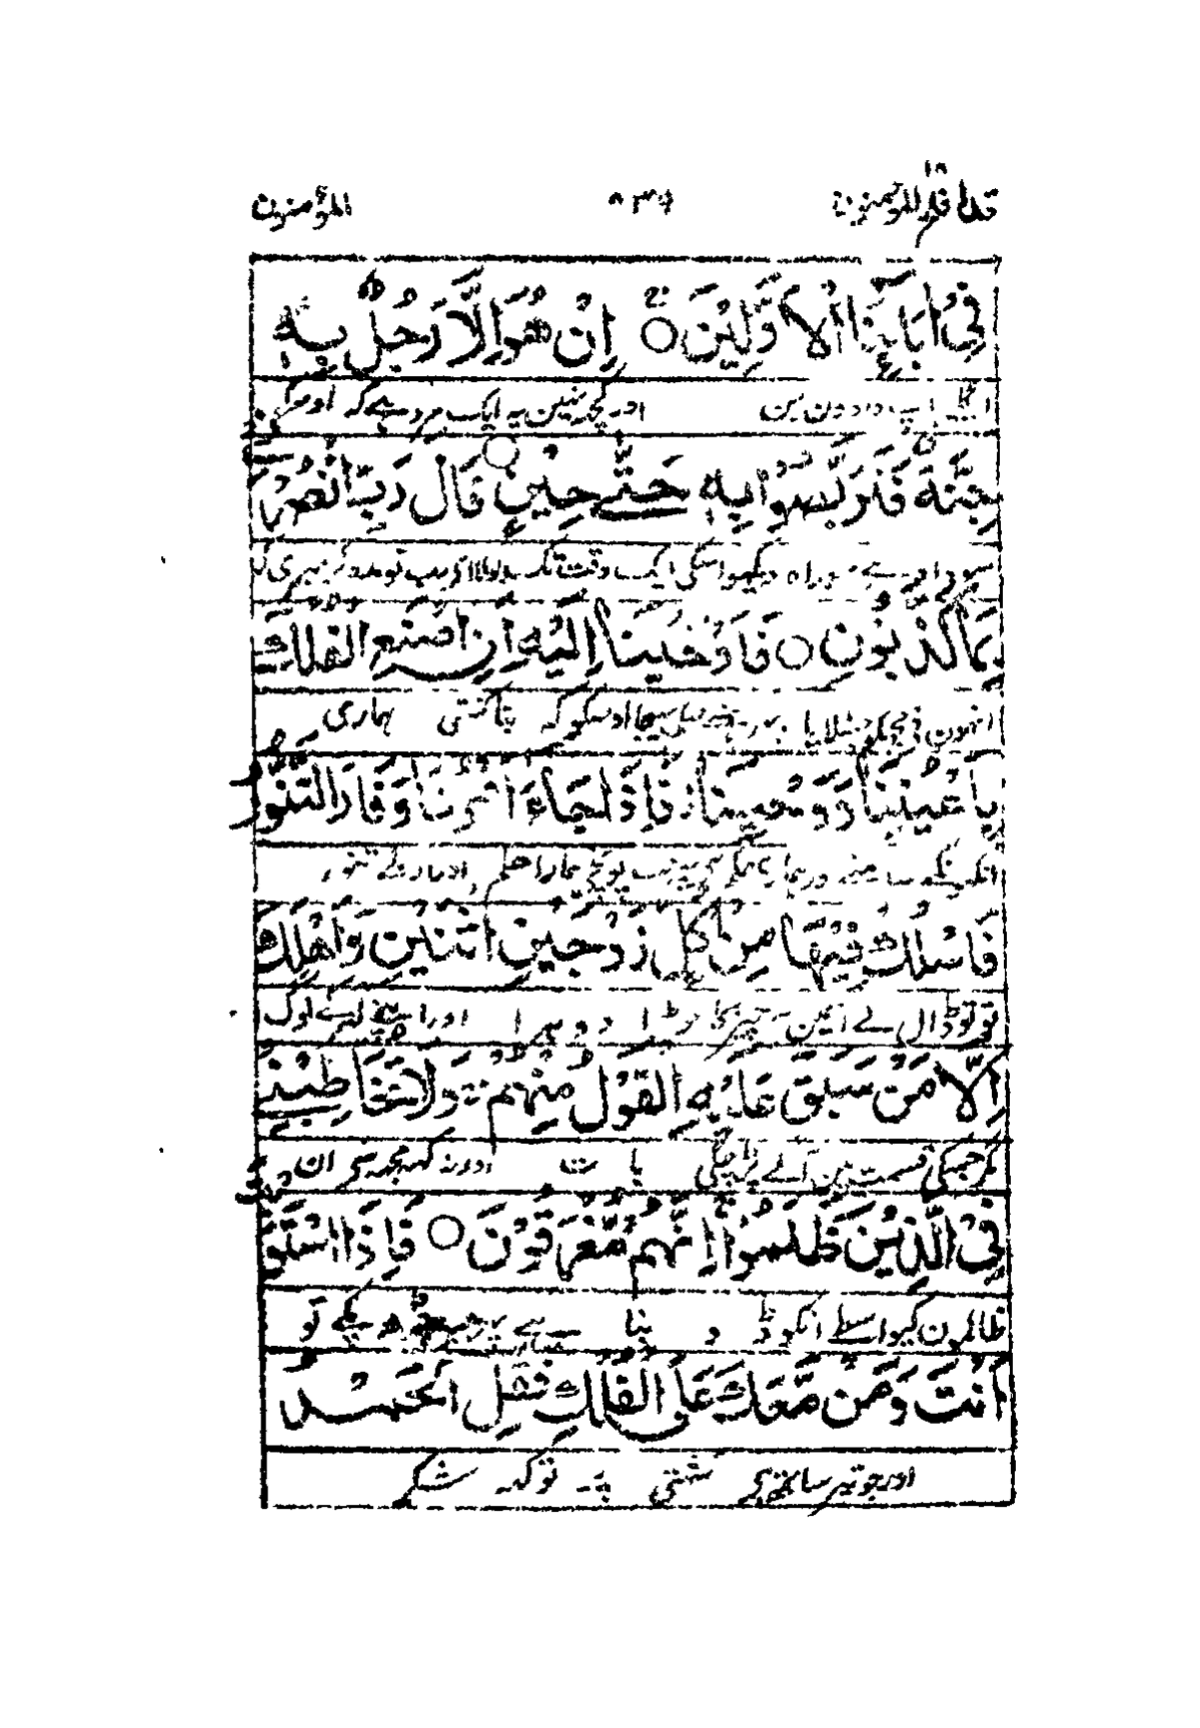 قد افلح المؤمنون ١٨ ٨٣٧ المؤمنون
فِيْٓ اٰبَآئِنَا الْاَوَّلِيْنَ ○ اِنْ هُوَ اِلَّا رَجُلٌۢ بِهٖ
باپ دادون مین اور کچھ نہین یہ ایک مرد ہے کہ اوسکو
جِنَّةٌ فَتَرَبَّصُوْا بِهٖ حَتّٰى حِيْنٍ ○ قَالَ رَبِّ انْصُرْنِيْ
سودا ہے سو راہ دیکھو اسکی ایک وقت تک بولا اے رب تو مدد کر میری
بِمَا كَذَّبُوْنِ ○ فَاَوْحَيْنَآ اِلَيْهِ اَنِ اصْنَعِ الْفُلْكَ
اونہون نے مجھکو جھٹلایا پہر ہمنے بھیجا اوسکو کہ بنا کشتی ہماری
بِاَعْيُنِنَا وَوَحْيِنَا فَاِذَا جَآءَ اَمْرُنَا وَفَارَ التَّنُّوْرُ
آنکھونکے سامنے اور ہمارے حکم سے پہر جب پہونچے ہمارا حکم اور ابلے تنور
فَاسْلُكْ فِيْهَا مِنْ كُلٍّ زَوْجَيْنِ اثْنَيْنِ وَاَهْلَكَ
تو تو ڈال لے اسمین ہر چیز کا جوڑا دوہرا اور اپنے گھر کے لوگ
اِلَّا مَنْ سَبَقَ عَلَيْهِ الْقَوْلُ مِنْهُمْ وَلَا تُخَاطِبْنِيْ
مگر جسکی قسمت مین آگے پڑ چکی بات اور نہ کہہ مجھ سے ان
فِي الَّذِيْنَ ظَلَمُوْا اِنَّهُمْ مُّغْرَقُوْنَ ○ فَاِذَا اسْتَوَيْتَ
ظالمون کیواسطے انکو ڈوبنا ہے پہر جب چڑھ چکے تو
اَنْتَ وَمَنْ مَّعَكَ عَلَى الْفُلْكِ فَقُلِ الْحَمْدُ
اور جو تیرے ساتھ ہے کشتی پہ تو کہہ شکر